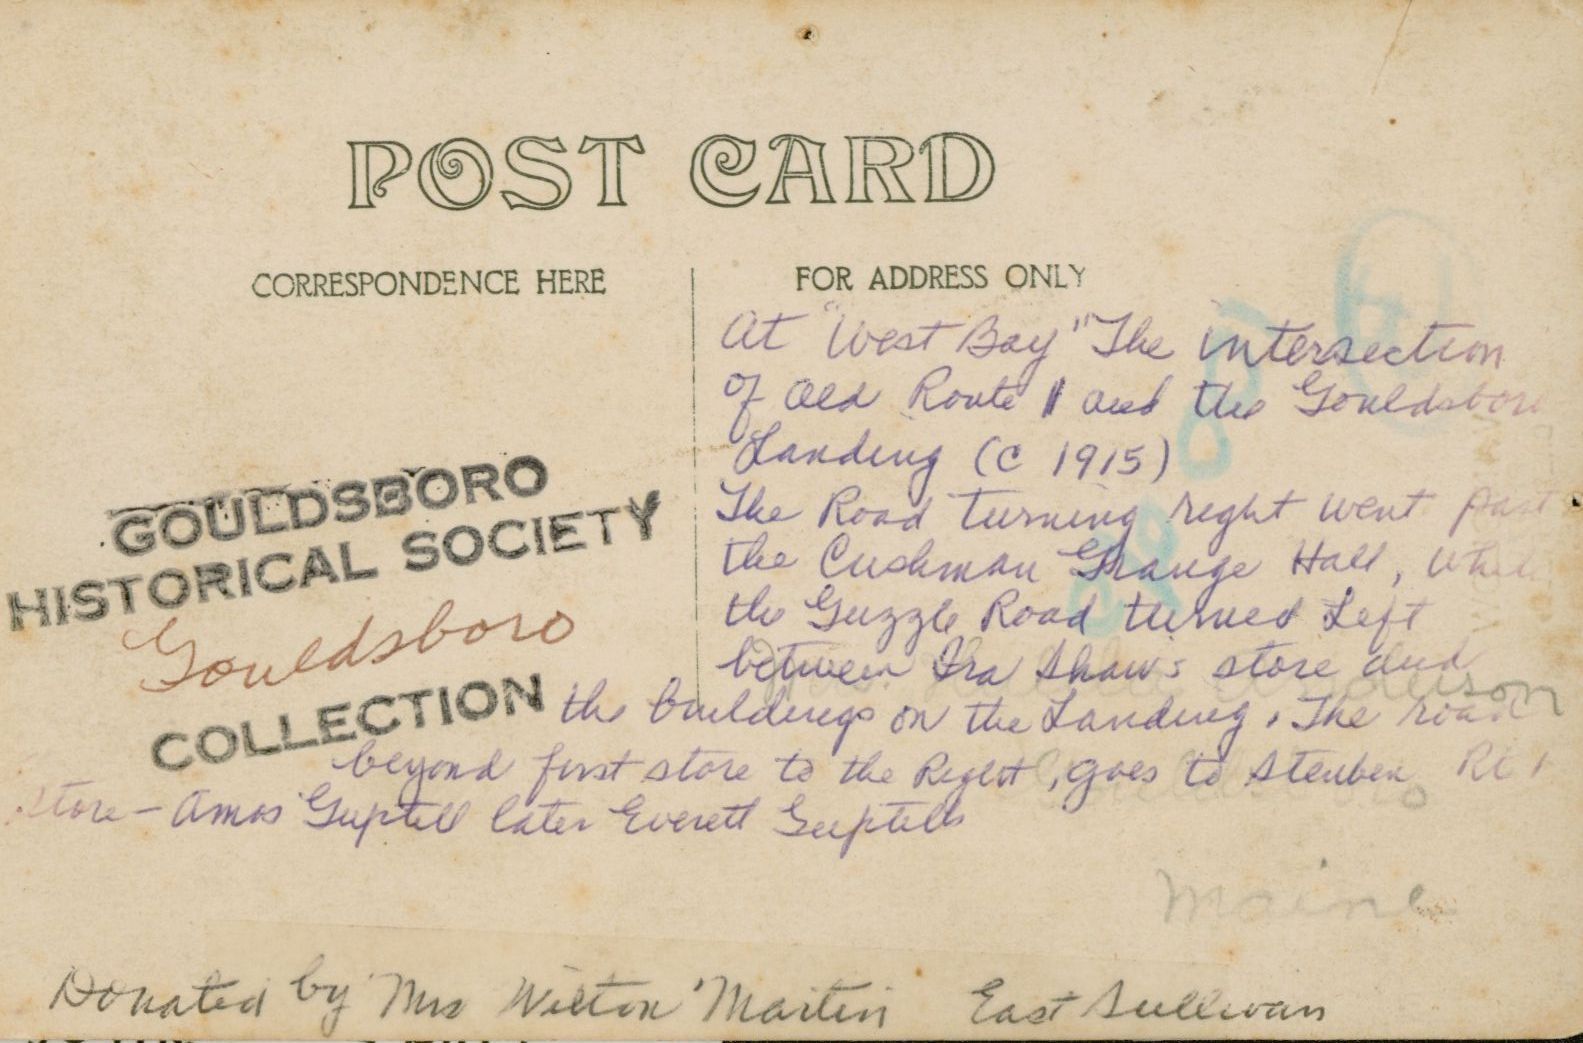 POST CARD
CORRESPONDENCE HERE
FOR ADDRESS ONLY
At "West Bay" The intersection
of Old Route 1 and the Gouldsboro
Landing (c 1915)
The Road turning right went past
the Cushman Grange Hall, while
the Guzzle Road turned Left
between Ira Shaws store and
the buildings on the Landing. The road
beyond first store to the Right, goes to Steuben Rt 1
Store - Amos Guptill later Everett Guptills
GOULDSBORO
HISTORICAL SOCIETY
Gouldsboro
COLLECTION
Maine
Donated by Mrs Wilton Martin East Sullivan